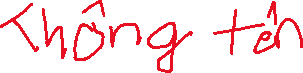 Thông tên